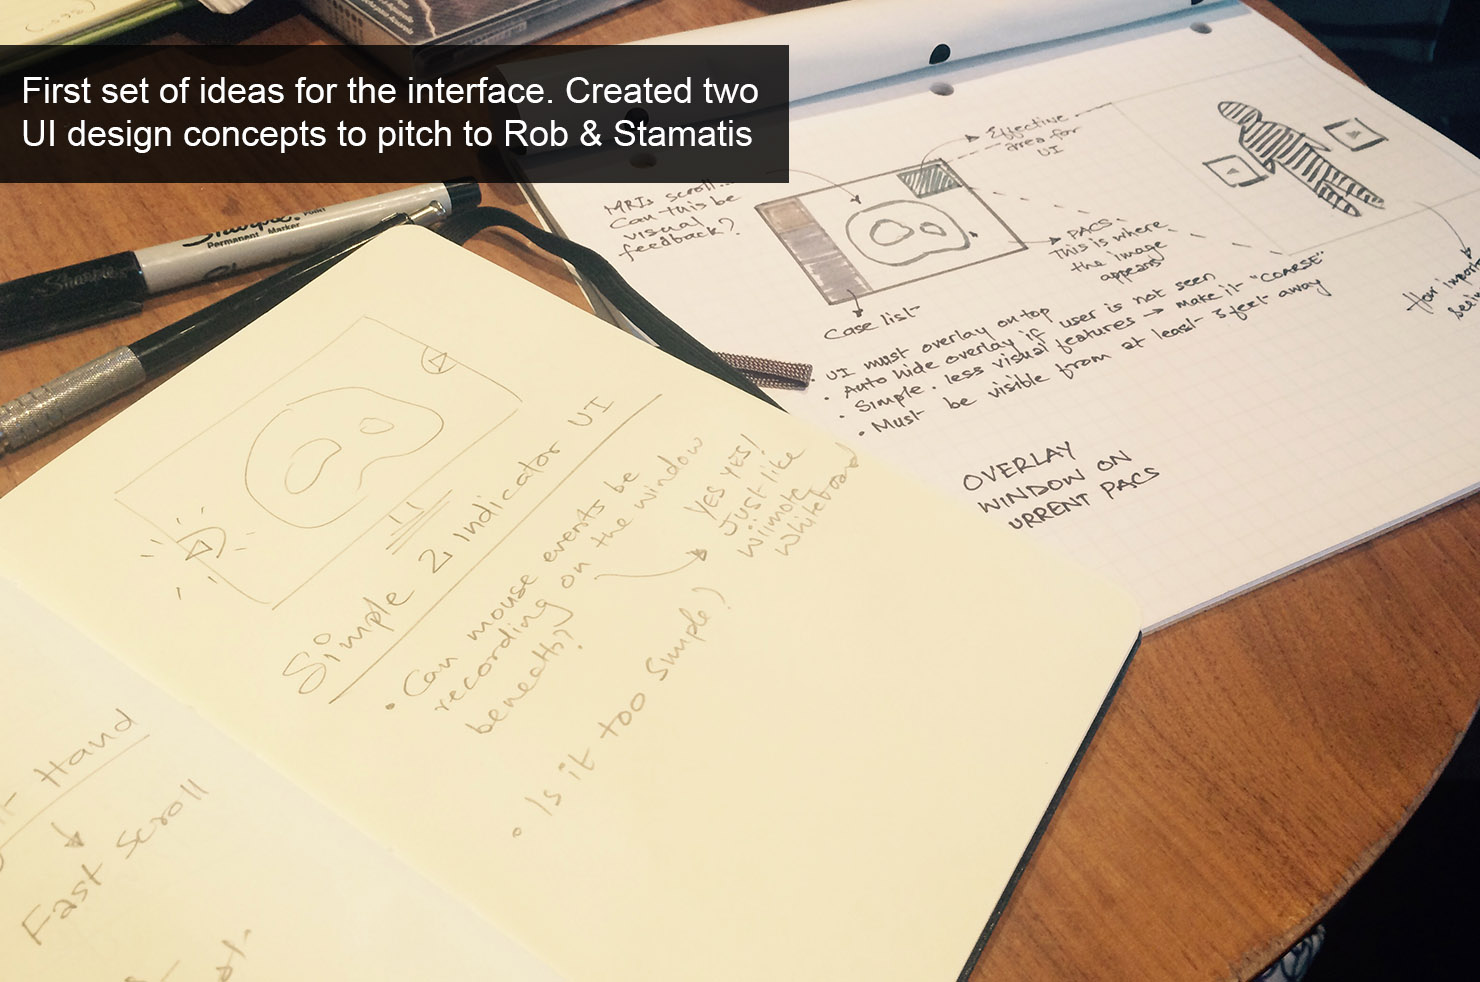 First set of ideas for the interface. Created two
UI design concepts to pitch to Rob & Stamatis
Sharpie
Point
Permanent Marker
MRIs scroll...
Can this be
visual
feedback?
Effective
area for
UI
PACS.
This is where
the image
appears
Case list
• UI must overlay on top
• Auto hide overlay if user is not seen
• Simple. less visual features → make it "COARSE"
• Must be visible from at least 3 feet away
OVERLAY
WINDOW ON
URRENT PACS
Simple 2 Indicator UI
• Can mouse events be
recording on the window
beneath?
YES YES!
Just like
Wiimote
Whiteboard
• Is it too simple?
Hand
Fast Scroll